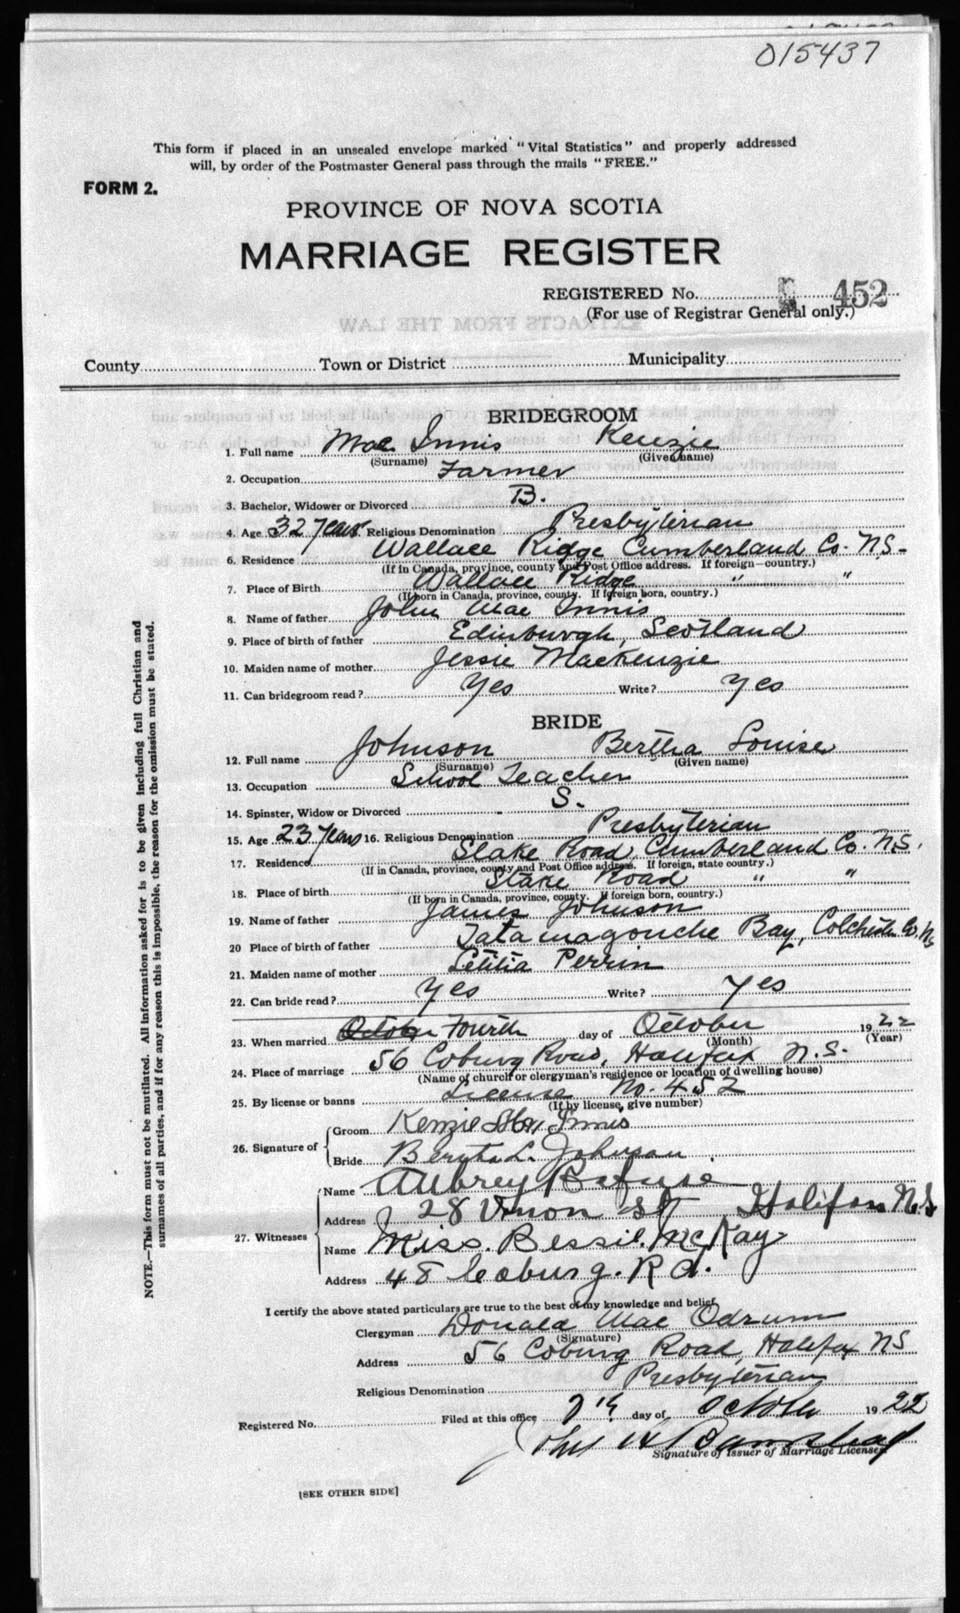 015437
This form if placed in an unsealed envelope marked "Vital Statistics" and properly addressed
will, by order of the Postmaster General pass through the mails "FREE."
FORM 2.
PROVINCE OF NOVA SCOTIA
MARRIAGE REGISTER
REGISTERED No. 452
(For use of Registrar General only.)
County Town or District Municipality
BRIDEGROOM
1. Full name Mac Innis Kenzie
(Surname) (Given name)
2. Occupation Farmer
3. Bachelor, Widower or Divorced B.
4. Age 32 years. Religious Denomination Presbyterian
6. Residence Wallace Ridge Cumberland Co. N.S.
(If in Canada, province, county and Post Office address. If foreign—country.)
7. Place of Birth Wallace Ridge " "
(If born in Canada, province, county. If foreign born, country.)
8. Name of father John Mac Innis
9. Place of birth of father Edinburgh, Scotland
10. Maiden name of mother Jessie MacKenzie
11. Can bridegroom read? Yes Write? Yes
BRIDE
12. Full name Johnson Bertha Louise
(Surname) (Given name)
13. Occupation School Teacher
14. Spinster, Widow or Divorced S.
15. Age 23 years 16. Religious Denomination Presbyterian
17. Residence Slake Road, Cumberland Co. N.S.
(If in Canada, province, county and Post Office address. If foreign, state country.)
18. Place of birth Stake Road " "
(If born in Canada, province, county. If foreign born, country.)
19. Name of father James Johnson
20 Place of birth of father Tatamagouche Bay, Colchester Co. N.S
21. Maiden name of mother Letitia Perrin
22. Can bride read? Yes Write? Yes
23. When married Fourth day of October 1922
(Month) (Year)
24. Place of marriage 56 Coburg Road, Halifax N.S.
(Name of church or clergyman's residence or location of dwelling house)
25. By license or banns License No. 452
(If by license, give number)
26. Signature of Groom Kenzie Innis
Bride Bertha L. Johnson
27. Witnesses Name Aubrey
Address 28 St Halifax N.S
Name Miss. Bessie. McKay
Address 48 Coburg. Rd.
I certify the above stated particulars are true to the best of my knowledge and belief,
Clergyman Donald Mac Odrum
(Signature)
Address 56 Coburg Road, Halifax NS
Religious Denomination Presbyterian
Registered No. Filed at this office 7th day of October 1922
Signature of Issuer of Marriage Licenses
[SEE OTHER SIDE]
NOTE.—This form must not be mutilated. All information asked for is to be given including full Christian and
surnames of all parties, and if for any reason this is impossible, the reason for the omission must be stated.